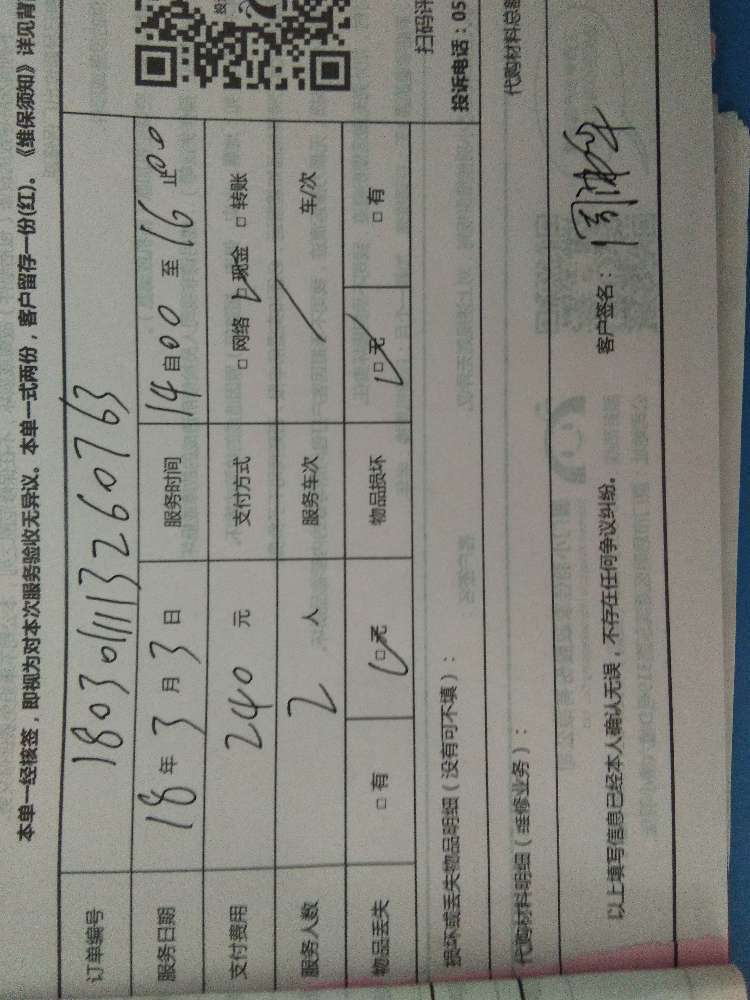 本单一经核签，即视为对本次服务验收无异议。本单一式两份，客户留存一份(红)。《维保须知》详见背
订单编号 18030111113260763
服务日期 18 年 3 月 3 日 服务时间 14 自 00 至 16 止 00
支付费用 240 元 支付方式 □ 网络 □ 现金 □ 转账
服务人数 2 人 服务车次 / 车/次
物品丢失 □ 有 □ 无 物品损坏 □ 无 □ 有
损坏或丢失物品明细（没有可不填）：
扫码评
投诉电话：05
代购材料明细（维修业务）： 代购材料总
以上填写信息已经本人确认无误，不存在任何争议纠纷。 客户签名：